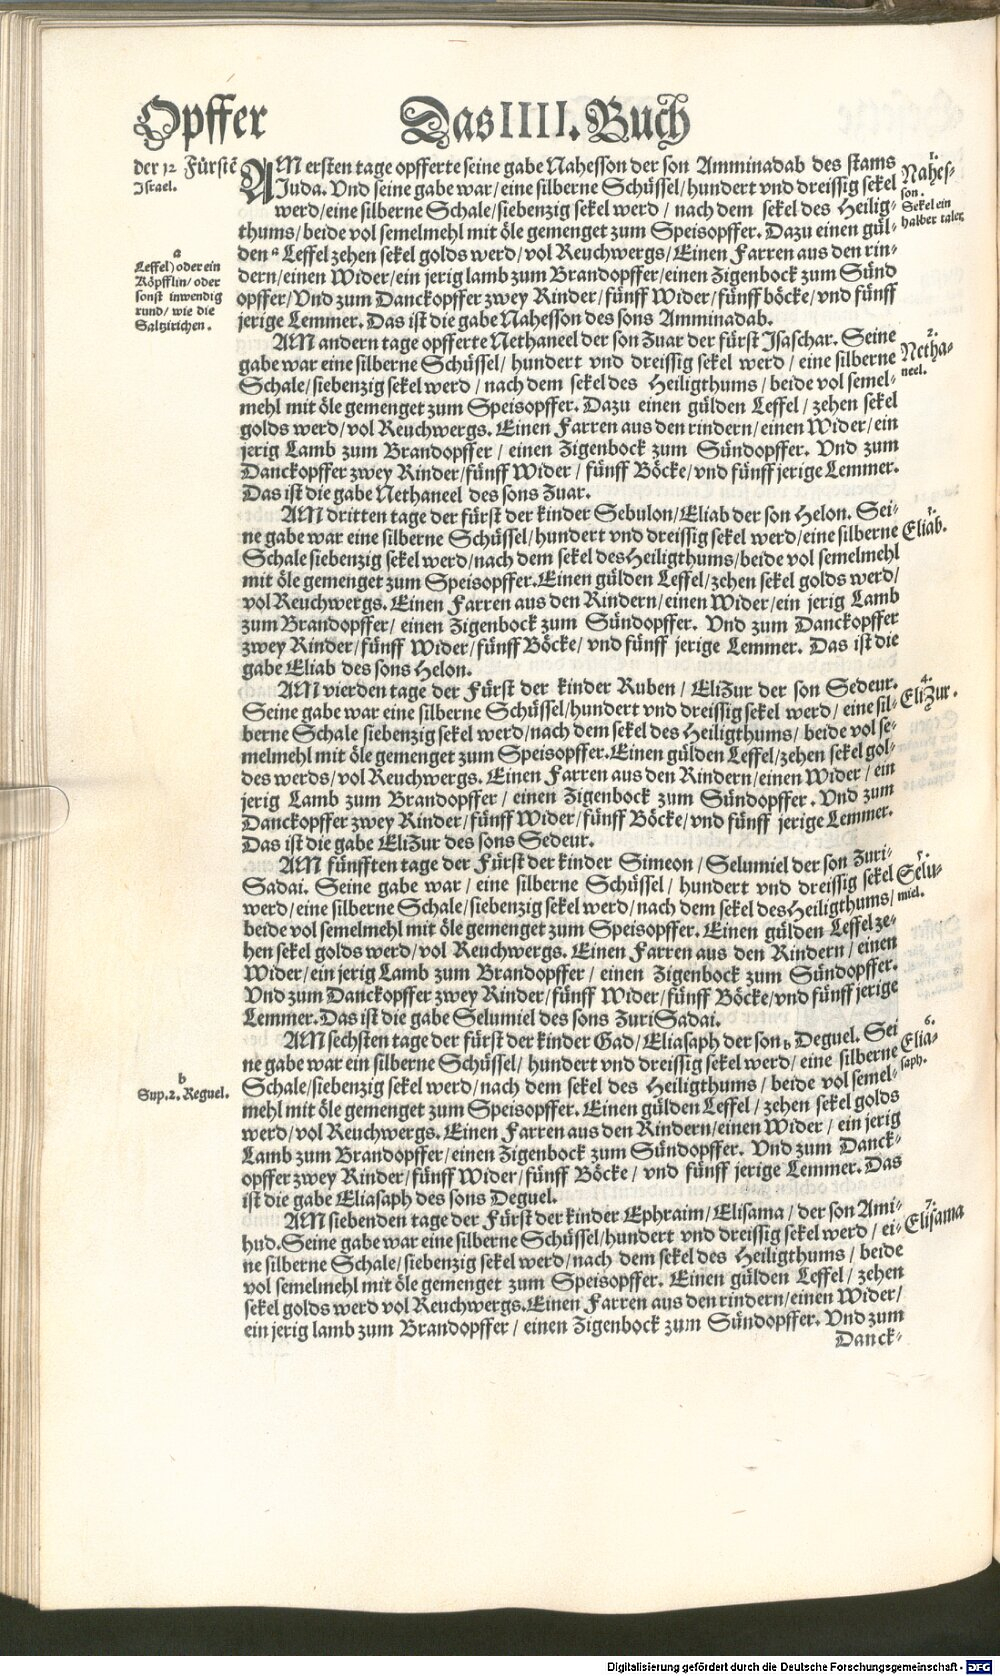 Opffer
Das IIII. Buch
der 12 Fürstē
Israel.
AM ersten tage opfferte seine gabe Nahesson der son Amminadab des stams
Juda. Vnd seine gabe war/eine silberne Schüssel/hundert vnd dreissig sekel
werd/eine silberne Schale/siebenzig sekel werd/nach dem sekel des Heilig-
thums/beide vol semelmehl mit öle gemenget zum Speisopffer. Dazu einen gül-
den a Leffel zehen sekel golds werd/vol Reuchwergs/Einen Farren aus den rin-
dern/einen Wider/ein jerig lamb zum Brandopffer/einen Zigenbock zum Sünd
opffer/Vnd zum Danckopffer zwey Rinder/fünff Wider/fünff böcke/vnd fünff
jerige Lemmer. Das ist die gabe Nahesson des sons Amminadab.
1.
Nahes-
son.
Sekel ein
halber taler
a
Leffel) oder ein
Köpfflin/oder
sonst inwendig
rund/wie die
Saltzirichen.
AM andern tage opfferte Nethaneel der son Zuar der fürst Isaschar. Seine
gabe war eine silberne Schüssel/hundert vnd dreissig sekel werd/eine silberne
Schale/siebenzig sekel werd/nach dem sekel des Heiligthums/beide vol semel-
mehl mit öle gemenget zum Speisopffer. Dazu einen gülden Leffel/zehen sekel
golds werd/vol Reuchwergs. Einen Farren aus den rindern/einen Wider/ein
jerig Lamb zum Brandopffer/einen Zigenbock zum Sündopffer. Vnd zum
Danckopffer zwey Rinder/fünff Wider/fünff Böcke/vnd fünff jerige Lemmer.
Das ist die gabe Nethaneel des sons Zuar.
2.
Netha-
neel.
AM dritten tage der fürst der kinder Sebulon/Eliab der son Helon. Sei-
ne gabe war eine silberne Schüssel/hundert vnd dreissig sekel werd/eine silberne
Schale siebenzig sekel werd/nach dem sekel des Heiligthums/beide vol semelmehl
mit öle gemenget zum Speisopffer. Einen gülden Leffel/zehen sekel golds werd/
vol Reuchwergs. Einen Farren aus den Rindern/einen Wider/ein jerig Lamb
zum Brandopffer/einen Zigenbock zum Sündopffer. Vnd zum Danckopffer
zwey Rinder/fünff Wider/fünff Böcke/vnd fünff jerige Lemmer. Das ist die
gabe Eliab des sons Helon.
3.
Eliab.
AM vierden tage der Fürst der kinder Ruben/EliZur der son Sedeur.
Seine gabe war eine silberne Schüssel/hundert vnd dreissig sekel werd/eine sil-
berne Schale siebenzig sekel werd/nach dem sekel des Heiligthums/beide vol se-
melmehl mit öle gemenget zum Speisopffer. Einen gülden Leffel/zehen sekel gol-
des werds/vol Reuchwergs. Einen Farren aus den Rindern/einen Wider/ein
jerig Lamb zum Brandopffer/einen Zigenbock zum Sündopffer. Vnd zum
Danckopffer zwey Rinder/fünff Wider/fünff Böcke/vnd fünff jerige Lemmer.
Das ist die gabe EliZur des sons Sedeur.
4.
EliZur.
AM fünfften tage der Fürst der kinder Simeon/Selumiel der son Zuri-
Sadai. Seine gabe war/eine silberne Schüssel/hundert vnd dreissig sekel
werd/eine silberne Schale/siebenzig sekel werd/nach dem sekel des Heiligthums/
beide vol semelmehl mit öle gemenget zum Speisopffer. Einen gülden Leffel ze-
hen sekel golds werd/vol Reuchwergs. Einen Farren aus den Rindern/einen
Wider/ein jerig Lamb zum Brandopffer/einen Zigenbock zum Sündopffer.
Vnd zum Danckopffer zwey Rinder/fünff Wider/fünff Böcke/vnd fünff jerige
Lemmer. Das ist die gabe Selumiel des sons ZuriSadai.
5.
Selu-
miel.
AM sechsten tage der fürst der kinder Gad/Eliasaph der son b Deguel. Sei
ne gabe war ein silberne Schüssel/hundert vnd dreissig sekel werd/eine silberne
Schale/siebenzig sekel werd/nach dem sekel des Heiligthums/beide vol semel-
mehl mit öle gemenget zum Speisopffer. Einen gülden Leffel/zehen sekel golds
werd/vol Reuchwergs. Einen Farren aus den Rindern/einen Wider/ein jerig
Lamb zum Brandopffer/einen Zigenbock zum Sündopffer. Vnd zum Danck-
opffer zwey Rinder/fünff Wider/fünff Böcke/vnd fünff jerige Lemmer. Das
ist die gabe Eliasaph des sons Deguel.
6.
Elia-
saph.
b
Sup.2. Reguel.
AM siebenden tage der Fürst der kinder Ephraim/Elisama/der son Ami-
hud. Seine gabe war eine silberne Schüssel/hundert vnd dreissig sekel werd/ei-
ne silberne Schale/siebenzig sekel werd/nach dem sekel des Heiligthums/beide
vol semelmehl mit öle gemenget zum Speisopffer. Einen gülden Leffel/zehen
sekel golds werd vol Reuchwergs. Einen Farren aus den rindern/einen Wider/
ein jerig lamb zum Brandopffer/einen Zigenbock zum Sündopffer. Vnd zum
Danck-
7.
Elisama
Digitalisierung gefördert durch die Deutsche Forschungsgemeinschaft - DFG